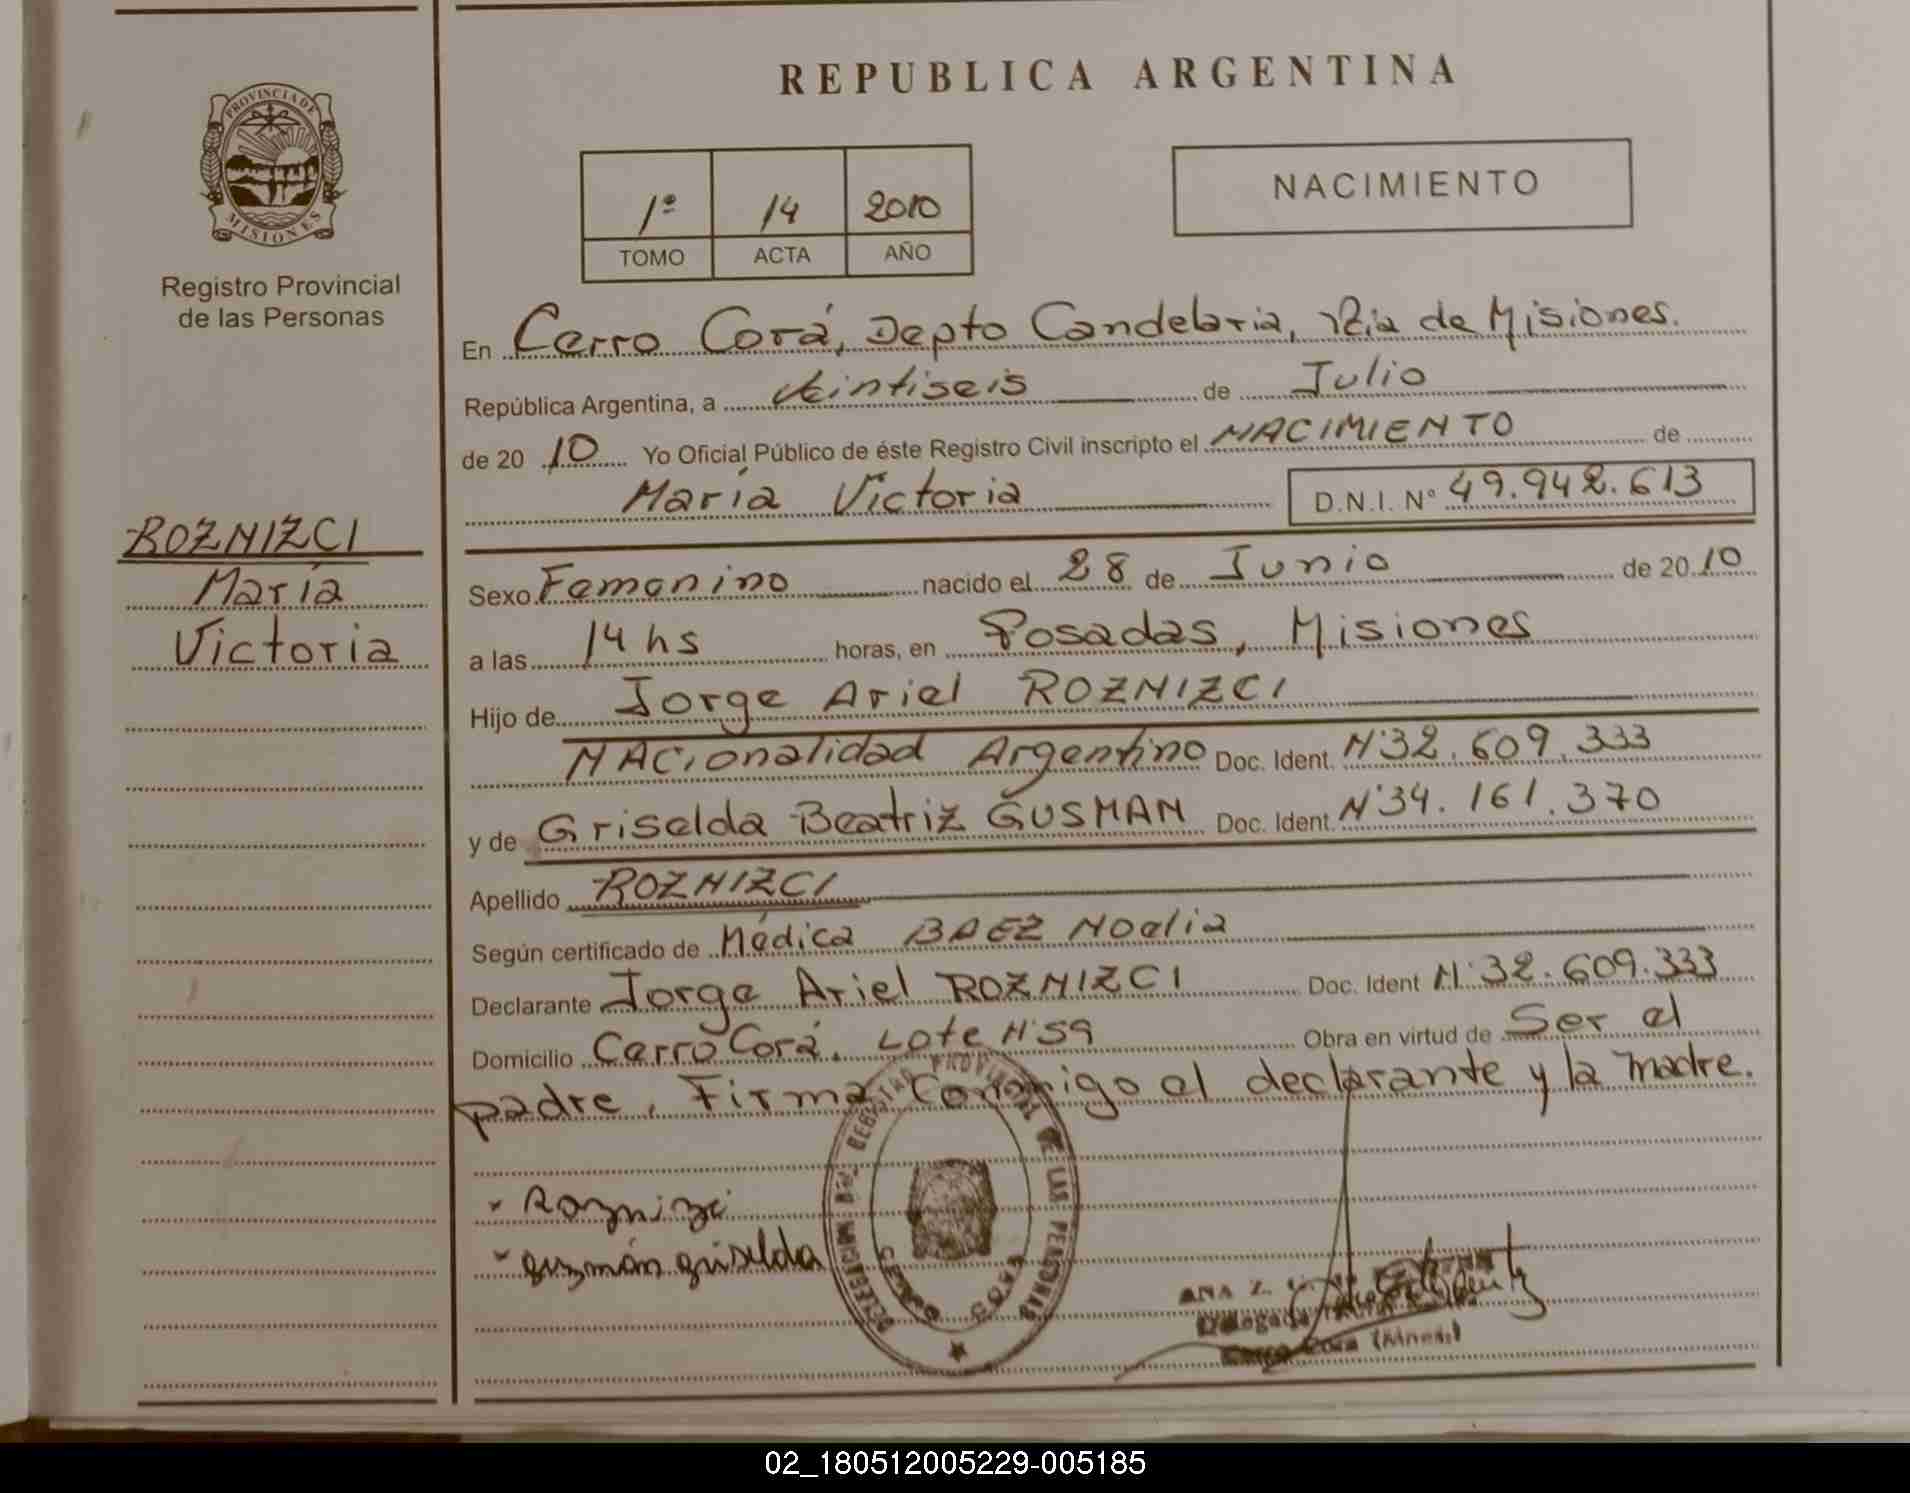 REPUBLICA ARGENTINA
PROVINCIA DE
MISIONES
Registro Provincial
de las Personas
1º 14 2010
TOMO ACTA AÑO
NACIMIENTO
En Cerro Corá, Depto Candelaria, Pcia de Misiones.
República Argentina, a Veintiseis de Julio
de 20 10 Yo Oficial Público de éste Registro Civil inscripto el NACIMIENTO de
María Victoria D.N.I. Nº 49.942.613
ROZNIZCI
María
Victoria
Sexo Femenino nacido el 28 de Junio de 20 10
a las 14 hs horas, en Posadas, Misiones
Hijo de Jorge Ariel ROZNIZCI
NACionalidad Argentino Doc. Ident. Nº32.609.333
y de Griselda Beatriz GUSMAN Doc. Ident. Nº34.161.370
Apellido ROZNIZCI
Según certificado de Médica BAEZ Noelia
Declarante Jorge Ariel ROZNIZCI Doc. Ident Nº32.609.333
Domicilio Cerro Corá. Lote Nº59 Obra en virtud de Ser el
padre. Firma Conmigo el declarante y la madre.
Roznizci
guzmán griselda
DELEGACION DEL REGISTRO PROVINCIAL DE LAS PERSONAS
CERRO CORA
ANA Z.
Delegada
Cerro Cora (Mnes.)
02_180512005229-005185